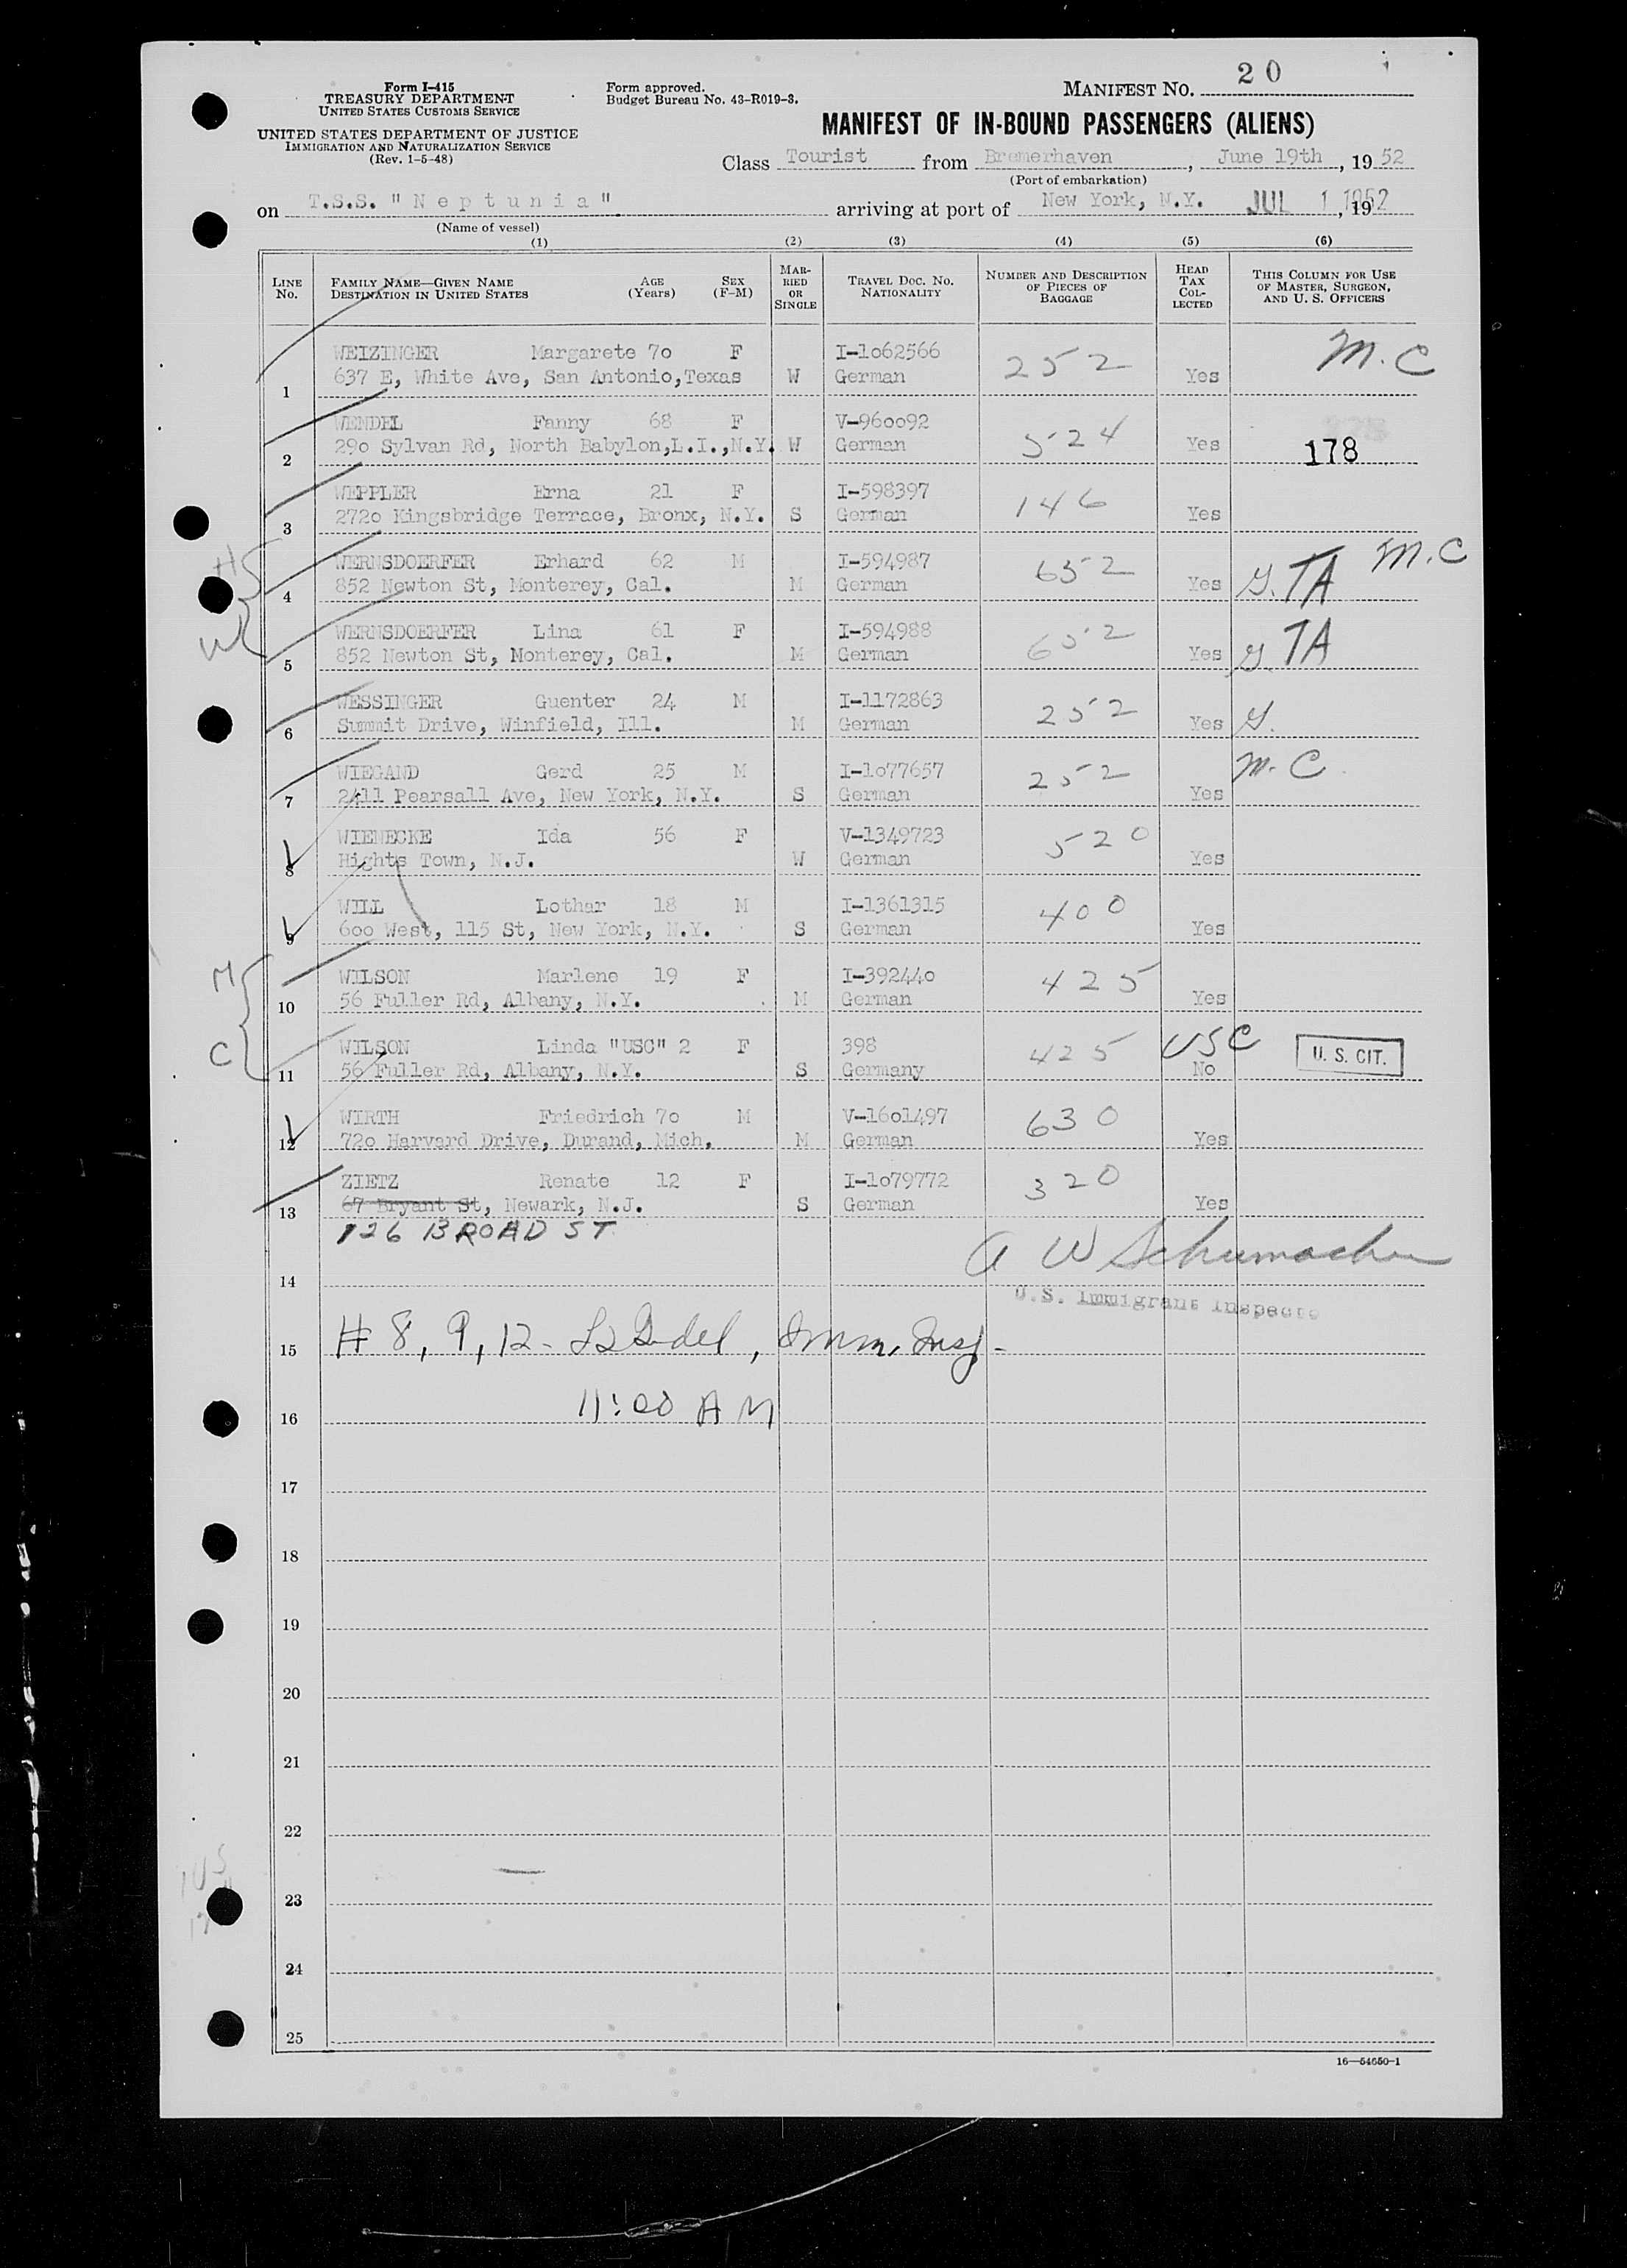 Form I-415
TREASURY DEPARTMENT
UNITED STATES CUSTOMS SERVICE
UNITED STATES DEPARTMENT OF JUSTICE
IMMIGRATION AND NATURALIZATION SERVICE
(Rev. 1-5-48)
Form approved.
Budget Bureau No. 43-R019-3.
MANIFEST NO. 20
MANIFEST OF IN-BOUND PASSENGERS (ALIENS)
Class Tourist from Bremerhaven, June 19th, 1952
(Port of embarkation)
on T.S.S. "Neptunia" arriving at port of New York, N.Y. JUL 1 1952, 19
(Name of vessel)
(1) (2) (3) (4) (5) (6)
LINE NO. FAMILY NAME—GIVEN NAME DESTINATION IN UNITED STATES AGE (Years) SEX (F-M) MARRIED OR SINGLE TRAVEL DOC. NO. NATIONALITY NUMBER AND DESCRIPTION OF PIECES OF BAGGAGE HEAD TAX COLLECTED THIS COLUMN FOR USE OF MASTER, SURGEON, AND U. S. OFFICERS
WEIZINGER Margarete 7o F I-1o62566 252 M.C
1 637 E, White Ave, San Antonio,Texas W German Yes
WENDEL Fanny 68 F V-96oo92 524
2 29o Sylvan Rd, North Babylon,L.I.,N.Y. W German Yes 178
WEPPLER Erna 21 F I-598397 146
3 272o Kingsbridge Terrace, Bronx, N.Y. S German Yes
H WERNSDOERFER Erhard 62 M I-594987 652 M.C
4 852 Newton St, Monterey, Cal. M German Yes G. TA
W WERNSDOERFER Lina 61 F I-594988 652
5 852 Newton St, Monterey, Cal. M German Yes G. TA
WESSINGER Guenter 24 M I-1172863 252
6 Summit Drive, Winfield, Ill. M German Yes G.
WIEGAND Gerd 25 M I-1o77657 252 M.C.
7 2411 Pearsall Ave, New York, N.Y. S German Yes
WIENECKE Ida 56 F V-1349723 520
8 Hights Town, N.J. W German Yes
WILL Lothar 18 M I-1361315 400
9 6oo West, 115 St, New York, N.Y. S German Yes
M WILSON Marlene 19 F I-39244o 425
10 56 Fuller Rd, Albany, N.Y. M German Yes
C WILSON Linda "USC" 2 F 398 425 USC U. S. CIT.
11 56 Fuller Rd, Albany, N.Y. S Germany No
WIRTH Friedrich 7o M V-16o1497 630
12 72o Harvard Drive, Durand, Mich. M German Yes
ZIETZ Renate 12 F I-1o79772 320
13 67 Bryant St, Newark, N.J. S German Yes
126 BROAD ST
A W Schumacher
14
U.S. Immigrant Inspector
15 # 8, 9, 12- , Imm. Insp.
16 11:00 AM
17
18
19
20
21
22
23
24
25
16—54650-1